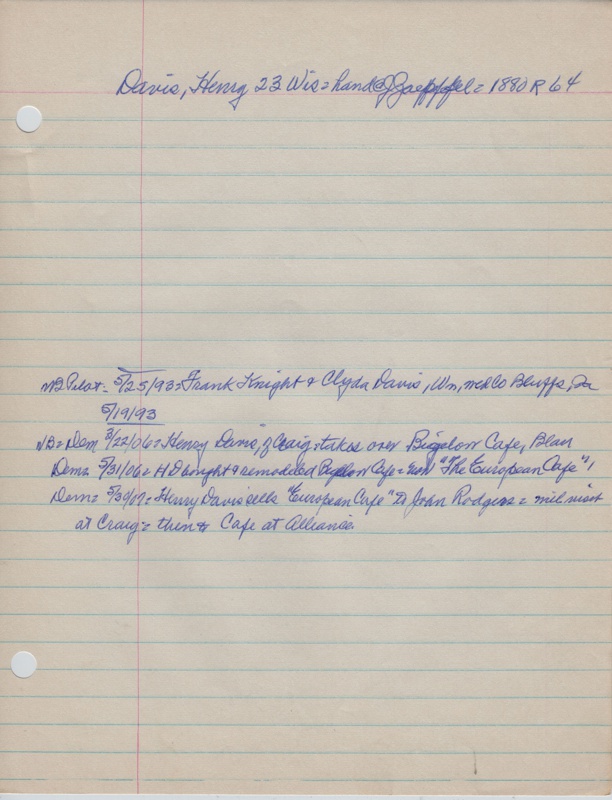 Davis, Henry 23 Wis = hand @ J Zaepffel = 1880 R 64
NB Pilot = 5/25/93 = Frank Knight & Clyda Davis, Wn, med Co Bluffs, Ia
5/19/93
NB = Dem 3/22/06 = Henry Davis, of Craig = takes over Bigelow Cafe, Blair
Dem = 5/31/06 = HD bought & remodeled Bigelow Cafe = now "The European Cafe"
Dem = 5/30/07 = Henry Davis sells "European Cafe" to John Rodgers = will visit
at Craig = then to Cafe at Alliance.